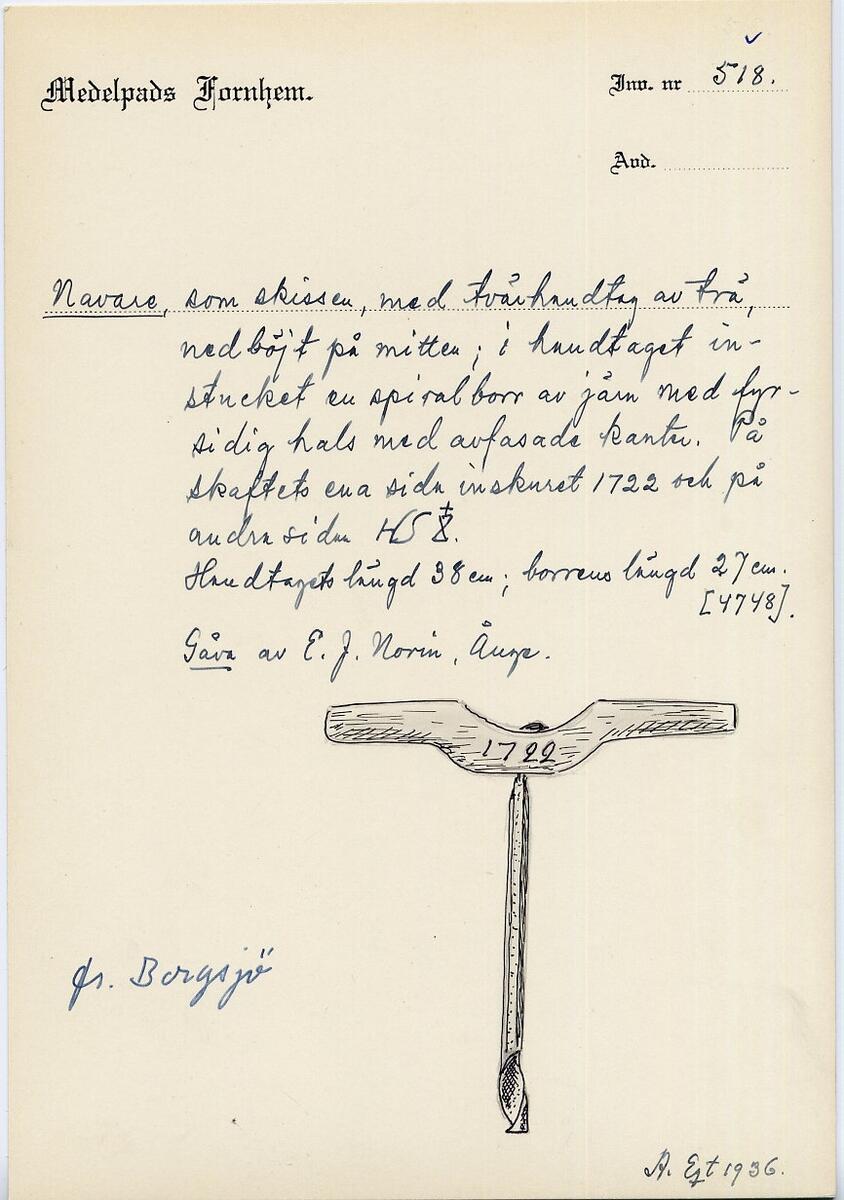 Medelpads Fornhem.
Inv. nr 518.
Avd.
Navare, som skissen, med tvärhandtag av trä,
nedböjt på mitten; i handtaget in-
stucket en spiralborr av järn med fyr-
sidig hals med avfasade kanter. På
skaftets ena sida inskuret 1722 och på
andra sidan HS
Handtagets längd 38 cm; borrens längd 27 cm.
[4748].
Gåva av E. J. Norin, Ånge.
1722
fr. Borgsjö
A. Egt 1936.